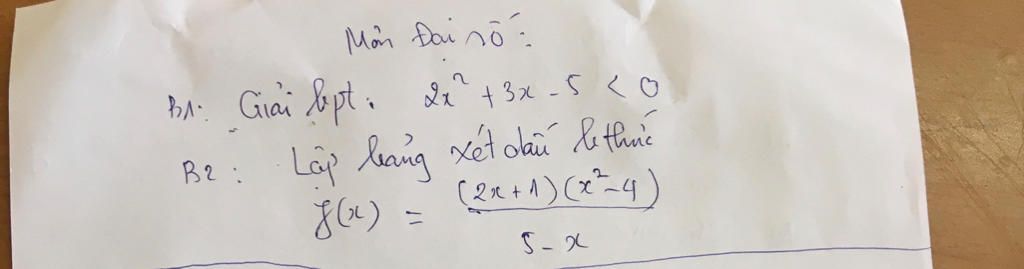 Môn Đại số:
B1: Giải bpt: 2x² + 3x - 5 < 0
B2: Lập bảng xét dấu b thức
f(x) = (2x+1)(x²-4) / 5-x